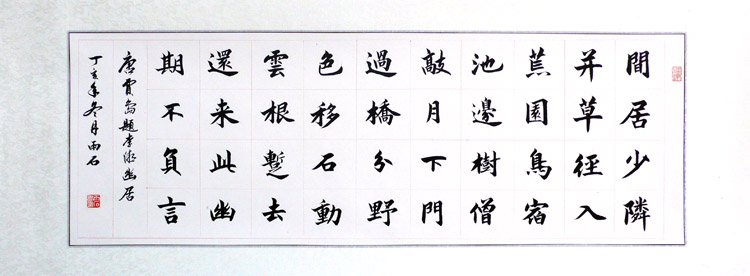 間居少隣
并草徑入
荒園鳥宿
池邊樹僧
敲月下門
過橋分野
色移石動
雲根蹔去
還来此幽
期不負言
唐賈島題李凝幽居
丁亥年冬月雨石